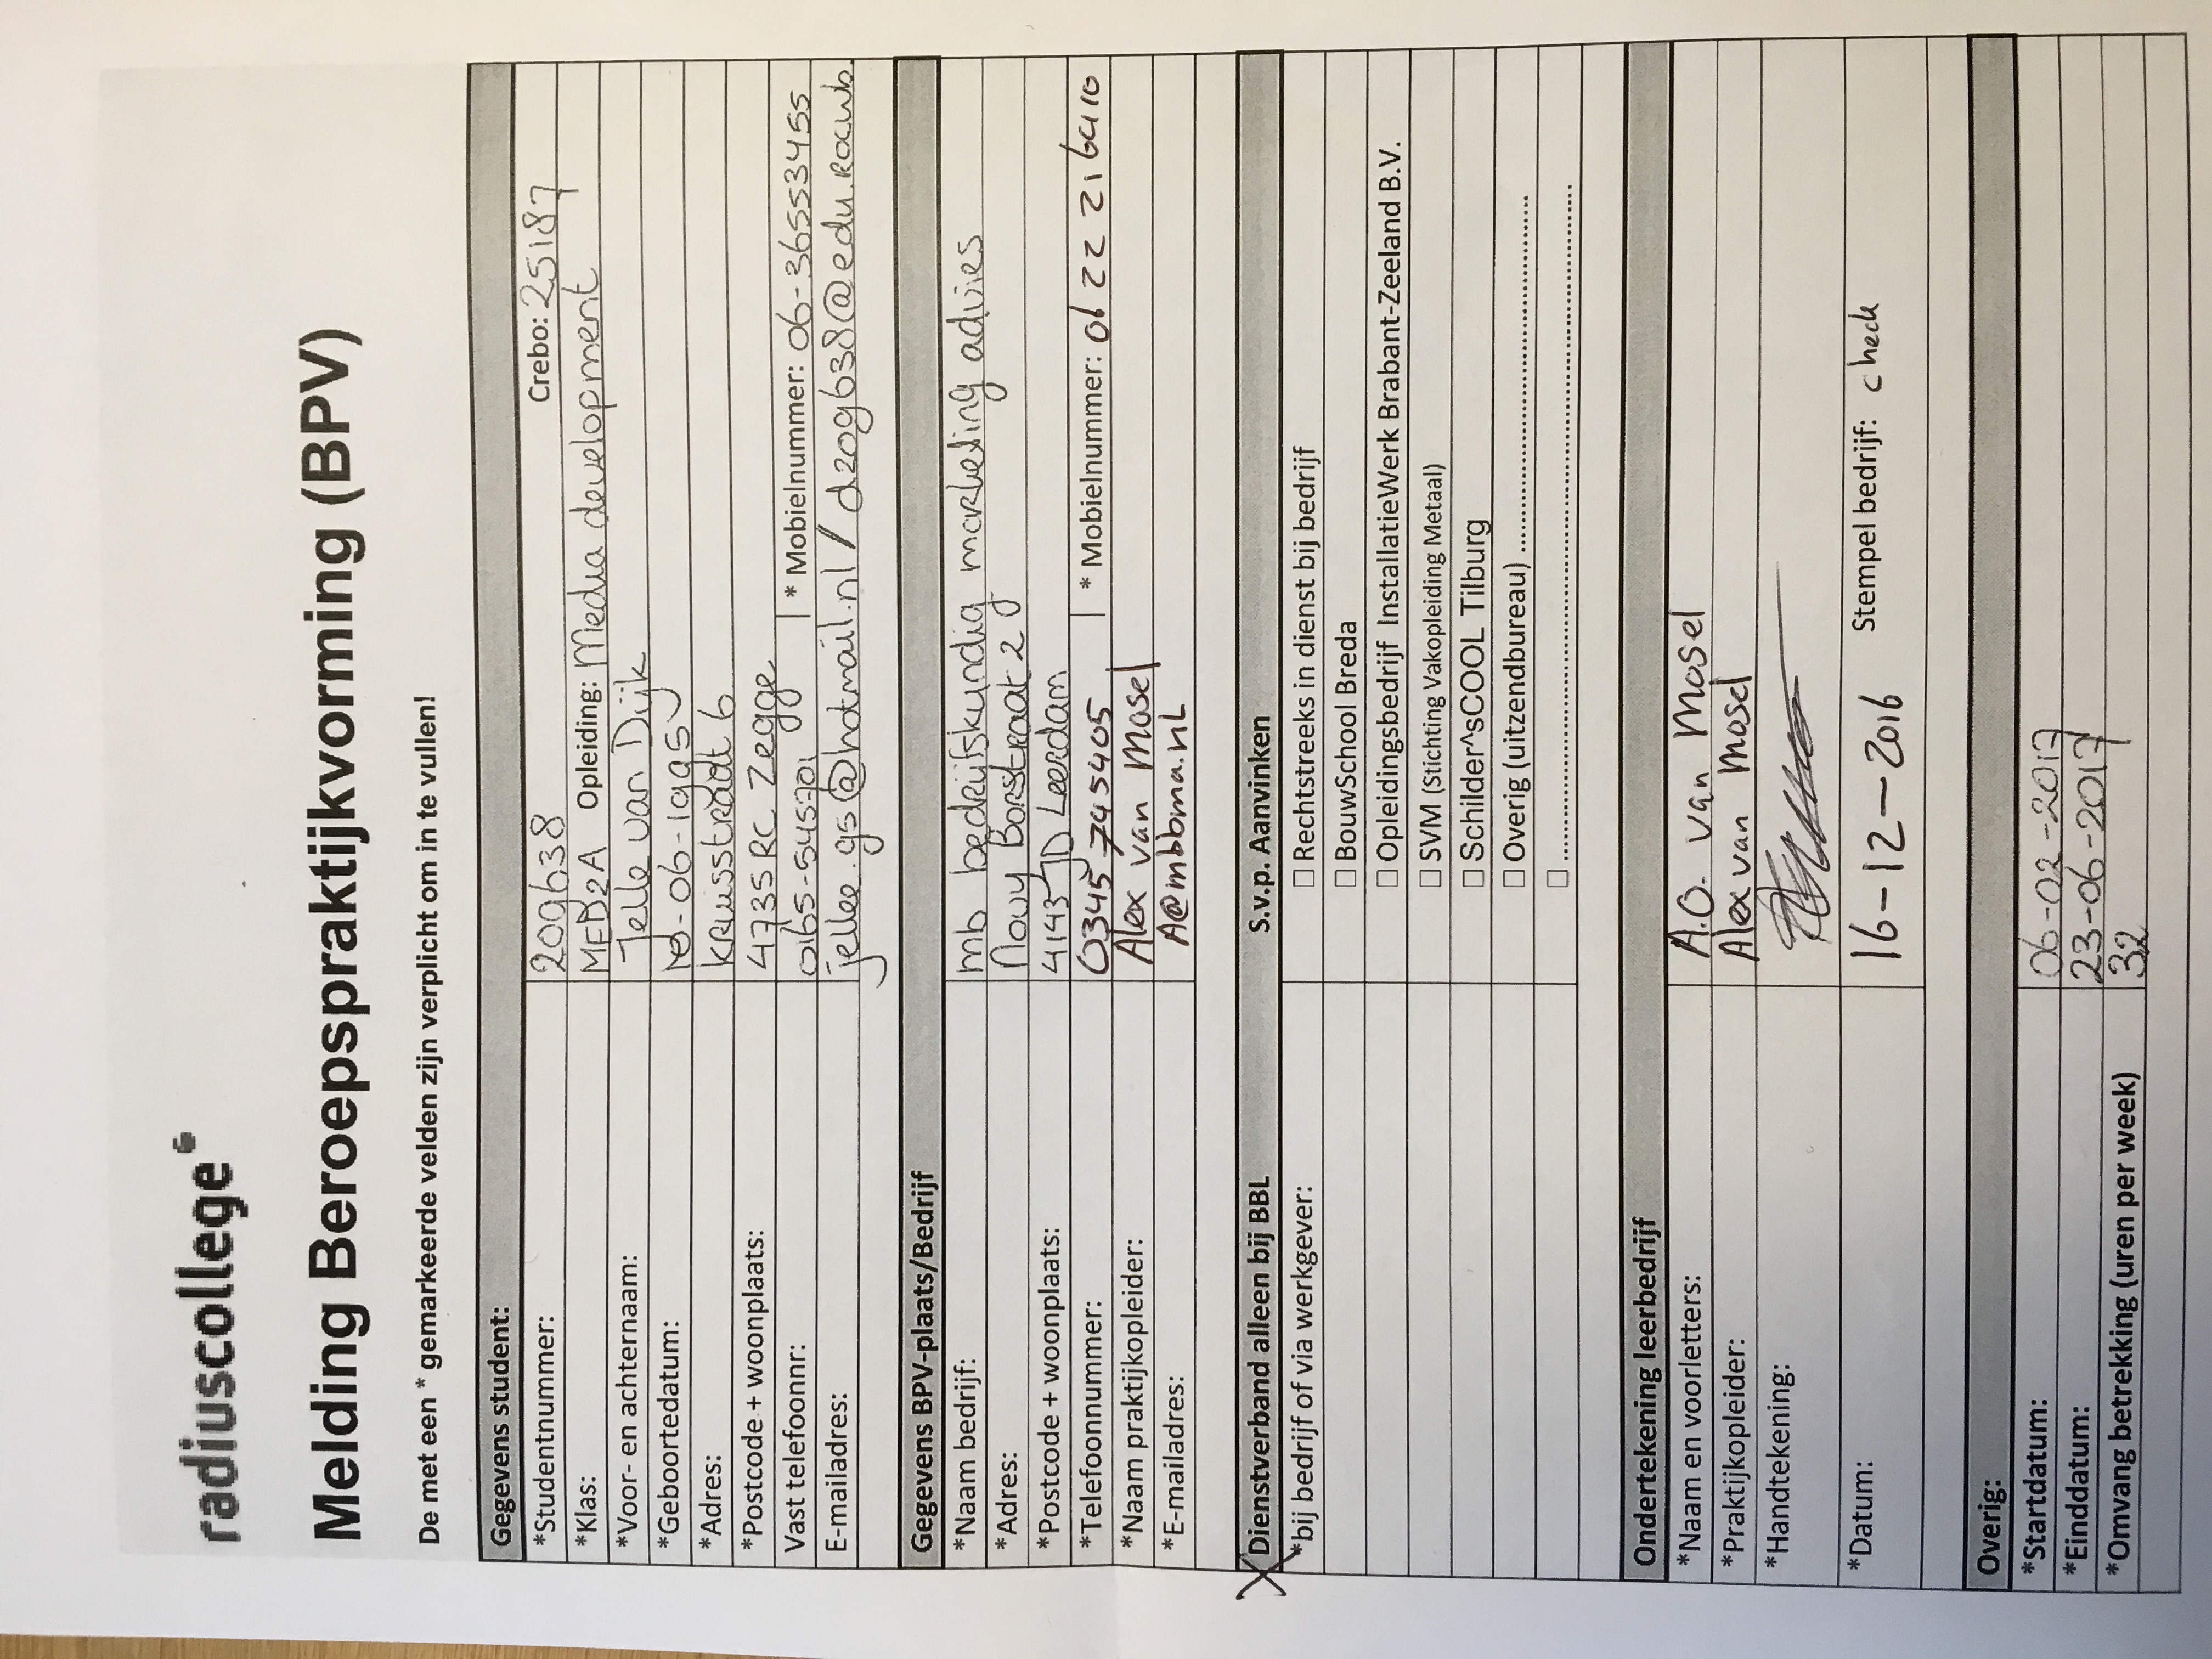 radiuscollege
Melding Beroepspraktijkvorming (BPV)
De met een * gemarkeerde velden zijn verplicht om in te vullen!
Gegevens student:
*Studentnummer: 209638 Crebo: 25187
*Klas: MED2A Opleiding: Media development
*Voor- en achternaam: Jelle van Dijk
*Geboortedatum: -06-1995
*Adres: Kruisstraat 6
*Postcode + woonplaats: 4735 RC Zegge
Vast telefoonnr: 0165-545701 * Mobielnummer: 06-36553455
E-mailadres: jellee.gs@hotmail.nl / d209638@edu.rocwb.
Gegevens BPV-plaats/Bedrijf
*Naam bedrijf: mb bedrijfskundig marketing advies
*Adres: 2
*Postcode + woonplaats: 4143 JD Leerdam
*Telefoonnummer: 0345 745405 * Mobielnummer: 06 22 21 6410
*Naam praktijkopleider: Alex van Mosel
*E-mailadres: A@mbbma.nL
X Dienstverband alleen bij BBL S.v.p. Aanvinken
*bij bedrijf of via werkgever: □ Rechtstreeks in dienst bij bedrijf
□ BouwSchool Breda
□ Opleidingsbedrijf InstallatieWerk Brabant-Zeeland B.V.
□ SVM (Stichting Vakopleiding Metaal)
□ Schilder^sCOOL Tilburg
□ Overig (uitzendbureau) ............................................................
□ ..................................................................................................................
Ondertekening leerbedrijf
*Naam en voorletters: A.O. van Mosel
*Praktijkopleider: Alex van Mosel
*Handtekening:
*Datum: 16-12-2016 Stempel bedrijf: check
Overig:
*Startdatum: 06-02-2017
*Einddatum: 23-06-2017
*Omvang betrekking (uren per week) 32